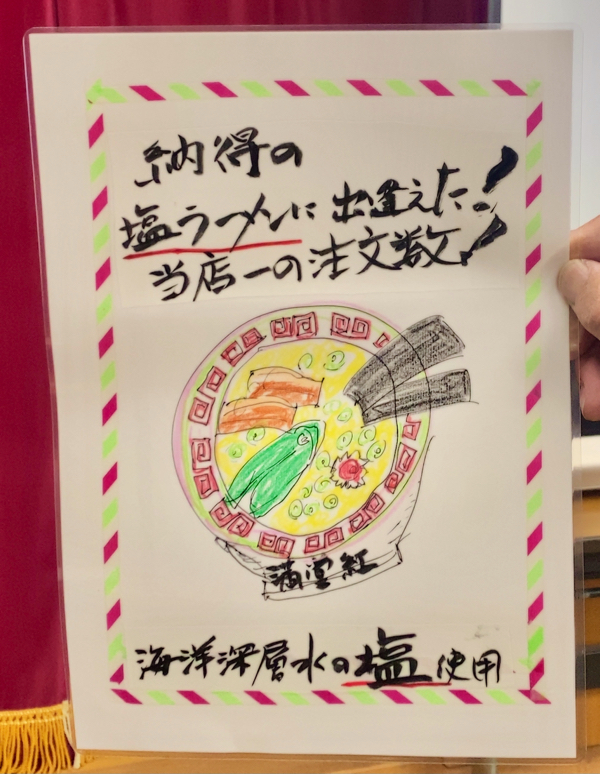 納得の
塩ラーメンに出逢えた!
当店一の注文数!
満雲紅
海洋深層水の塩使用